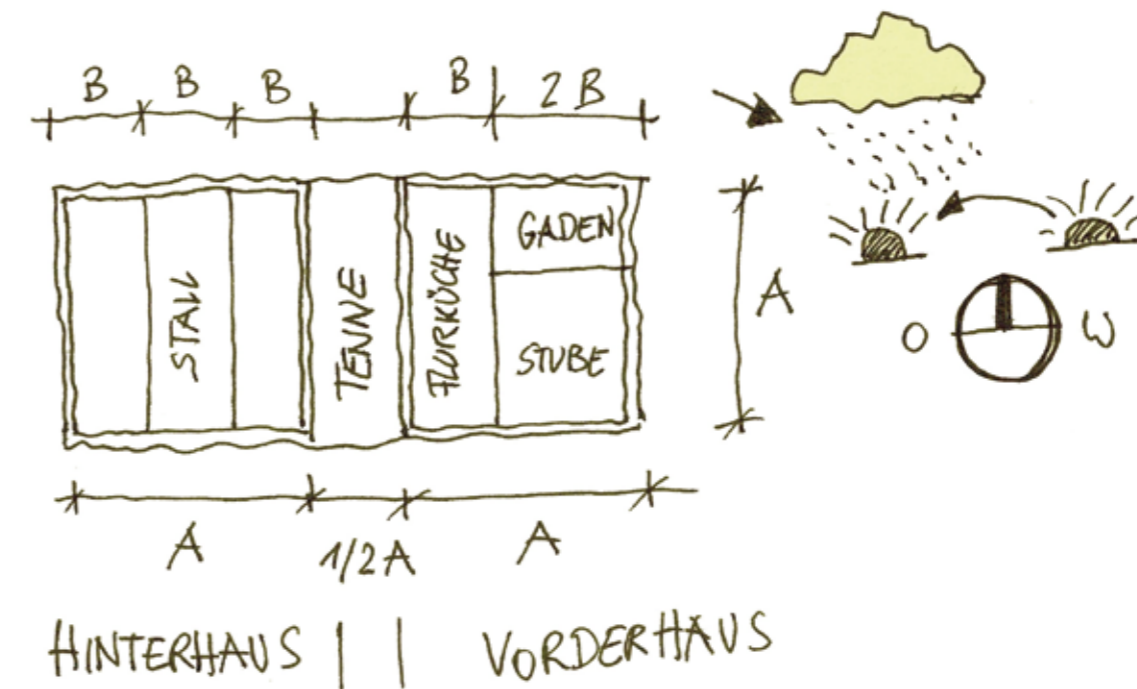 B B B B 2 B
GADEN
STALL TENNE FLURKÜCHE STUBE
A
O W
A 1/2 A A
HINTERHAUS VORDERHAUS